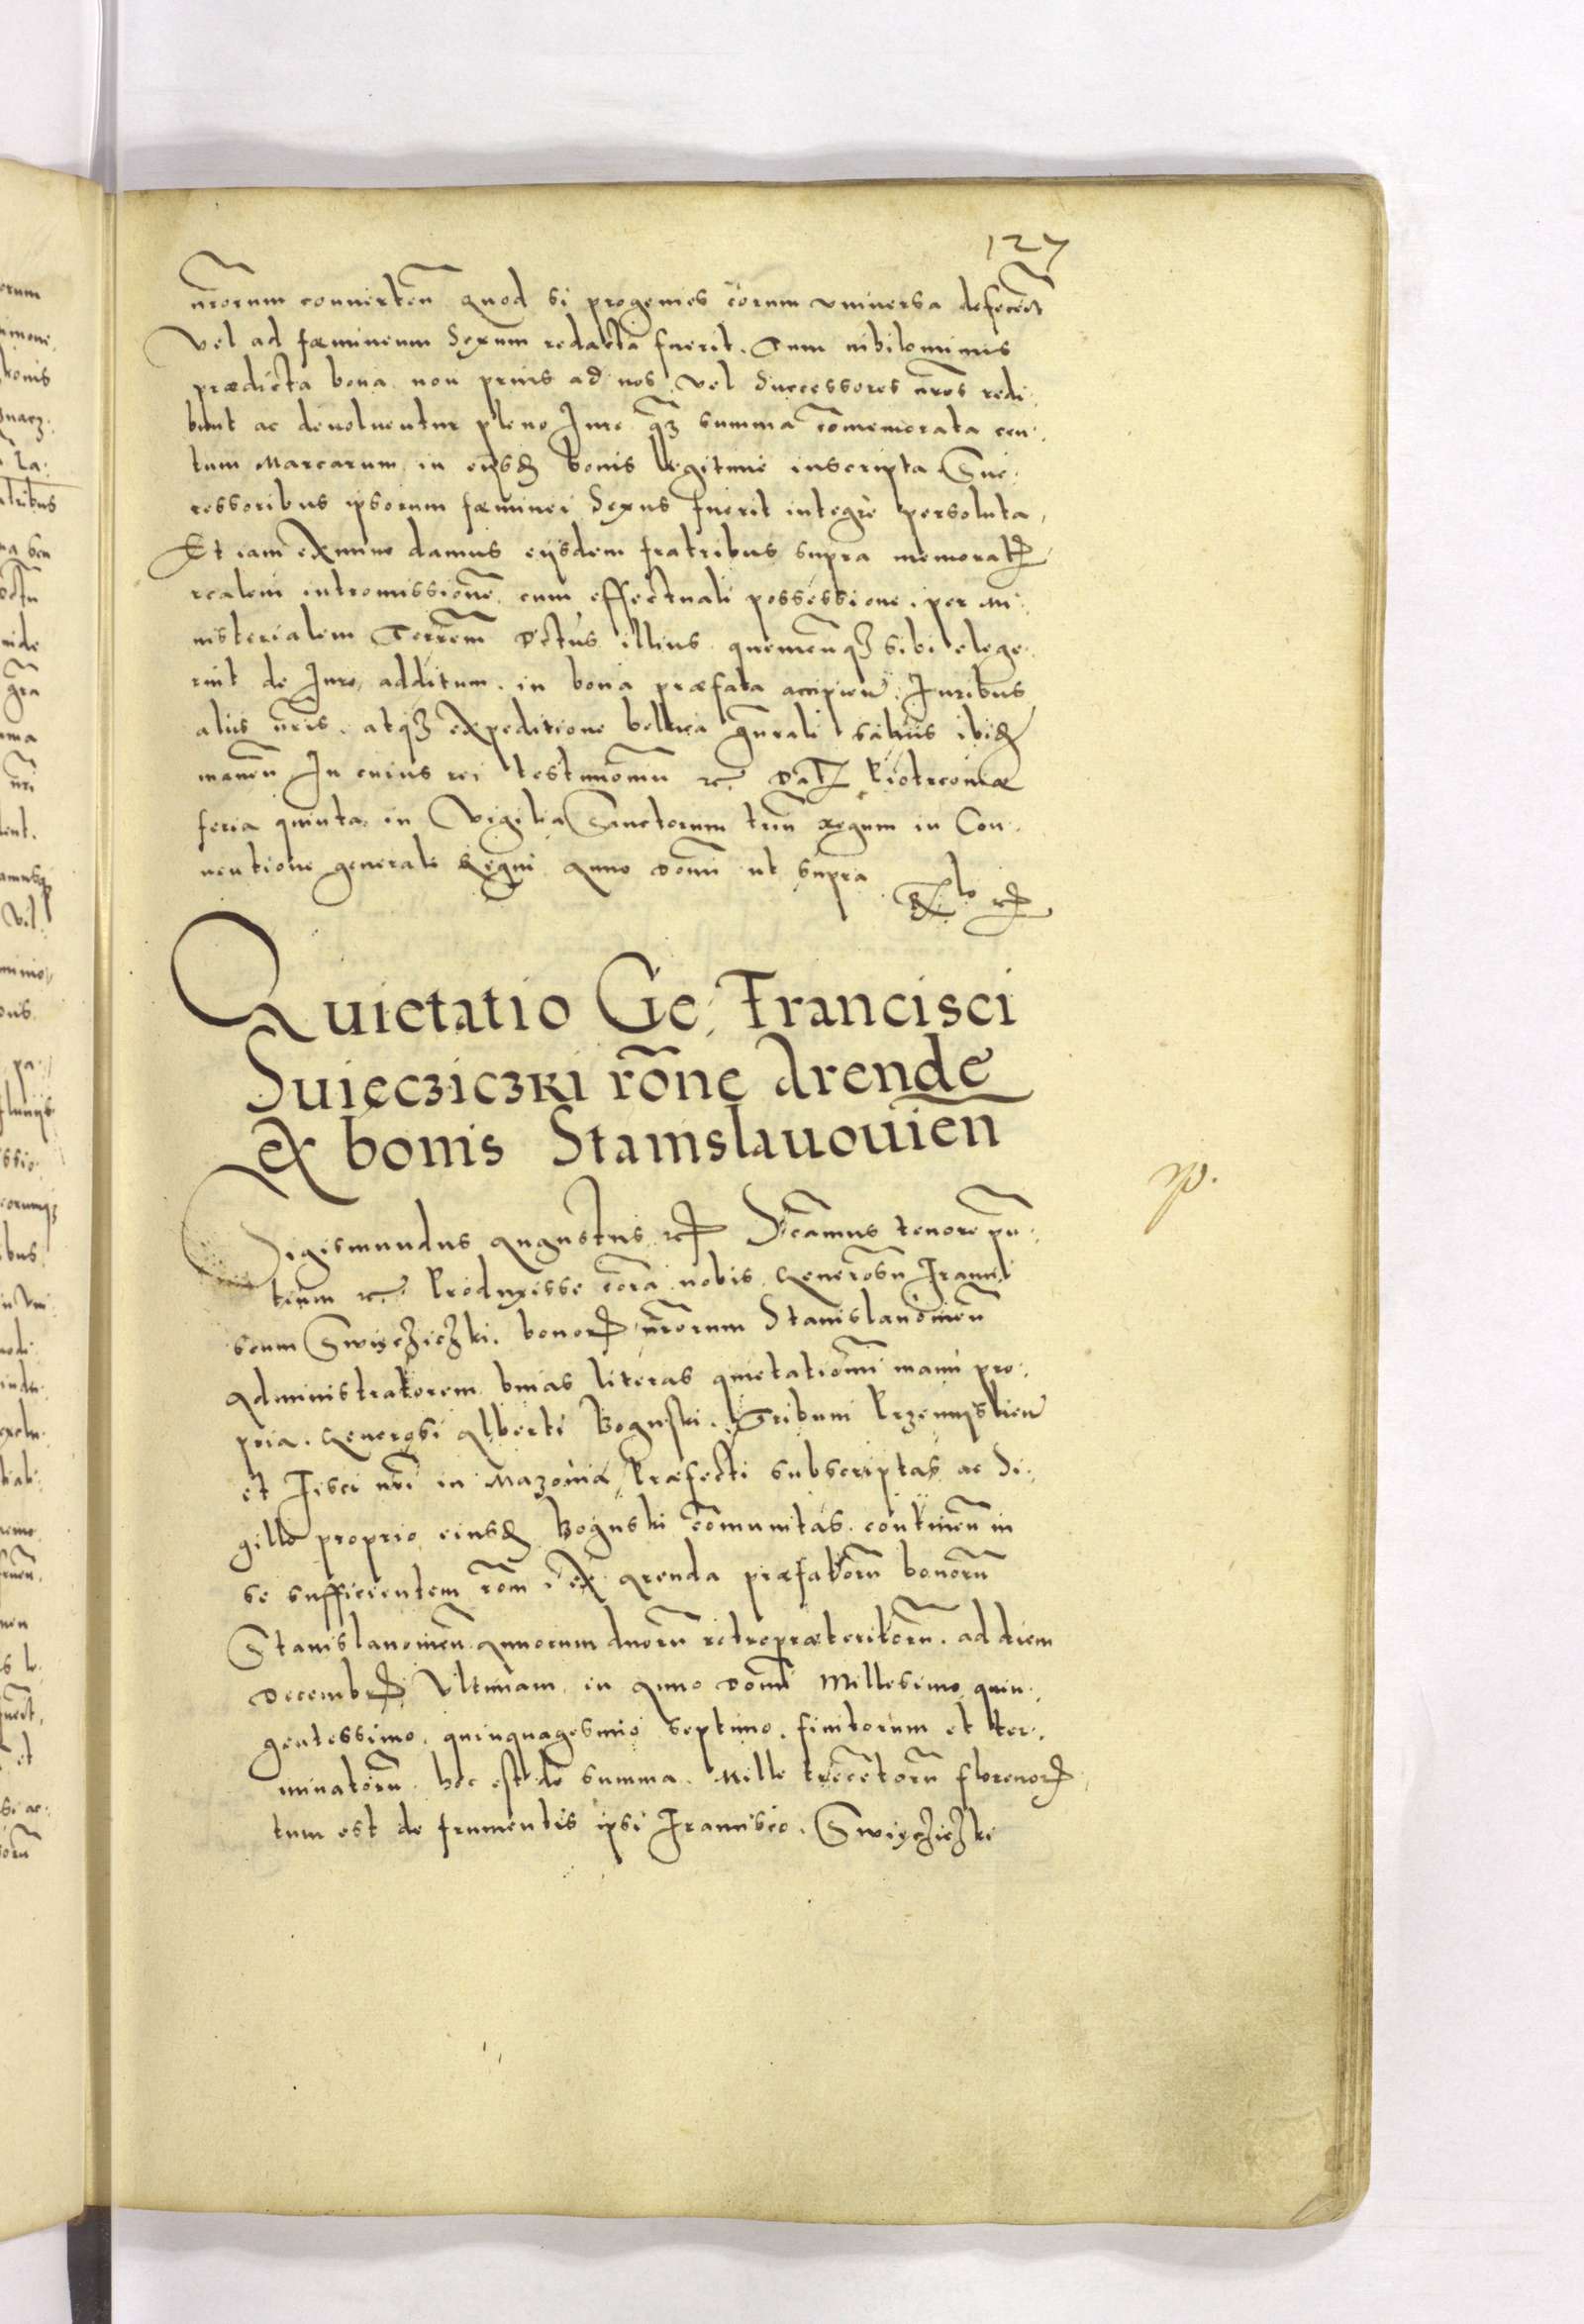 127
nr̃orum conuerten̄ Quod si progenies eorum vniuersa defecerit
Vel ad fæmineum Sexum redacta fuerit. Tum nihilominus
prædicta bona non prius ad nos vel Successores nr̃os redi
bunt ac deuoluentur pleno Jure qq̃ summa com̃emorata cen
tum Marcarum in eisd bonis legitime inscripta Suc
cessoribus ipsorum fæminei Sexus fuerit integre persoluta,
Et iam ex nunc damus eijsdem fratribus supra memorat
realem intromissionem cum effectuali possessione per Mi
nisterialem Terrẽm D̃ctus illius quemcunq3 sibi elege
rint de Jure additum in bona præfata accipien̄ Juribus
aliis nr̃is atq3 expeditione bellica gñrali saluis ibid
manen̄ In cuius rei testimoniũ etc Dat Piotrcoviæ
feria quinta in Vigilia Sanctorum triũ regum in Con
uentione generali Regni Anno Domi ut supra
Quietatio Ge, Francisci
Suięcziczki rõne Arende
ex bonis Stanislauouien̄
Sigismundus Augustus etc Sc̃amus tenore pñ
tium etc Produxisse corã nobis Generosũ Franci
scum Swięcziczki bonor nr̃orum Stanislauouien̄
Administratorem binas literas quietationũ manu pro
pria Generosi Alberti Boguski Tribuni Przemislien̄
et Fisci nr̃i in Mazouia Præfecti subscriptas ac Si
gillo proprio eiusd Boguski com̃unitas continen̄ in
se sufficientem rõem ex Arenda præfatorũ bonorũ
Stanislauouien̄ Annorum duorũ retropræteritorũ ad diem
Decembr Vltimam in Anno Domi Millesimo quin
gentessimo quinquagesimo septimo finitorum et ter
minatorũ hoc est de summa Mille trecẽtorũ florenor
tum est de frumentis ipsi Francisco Swięcziczki